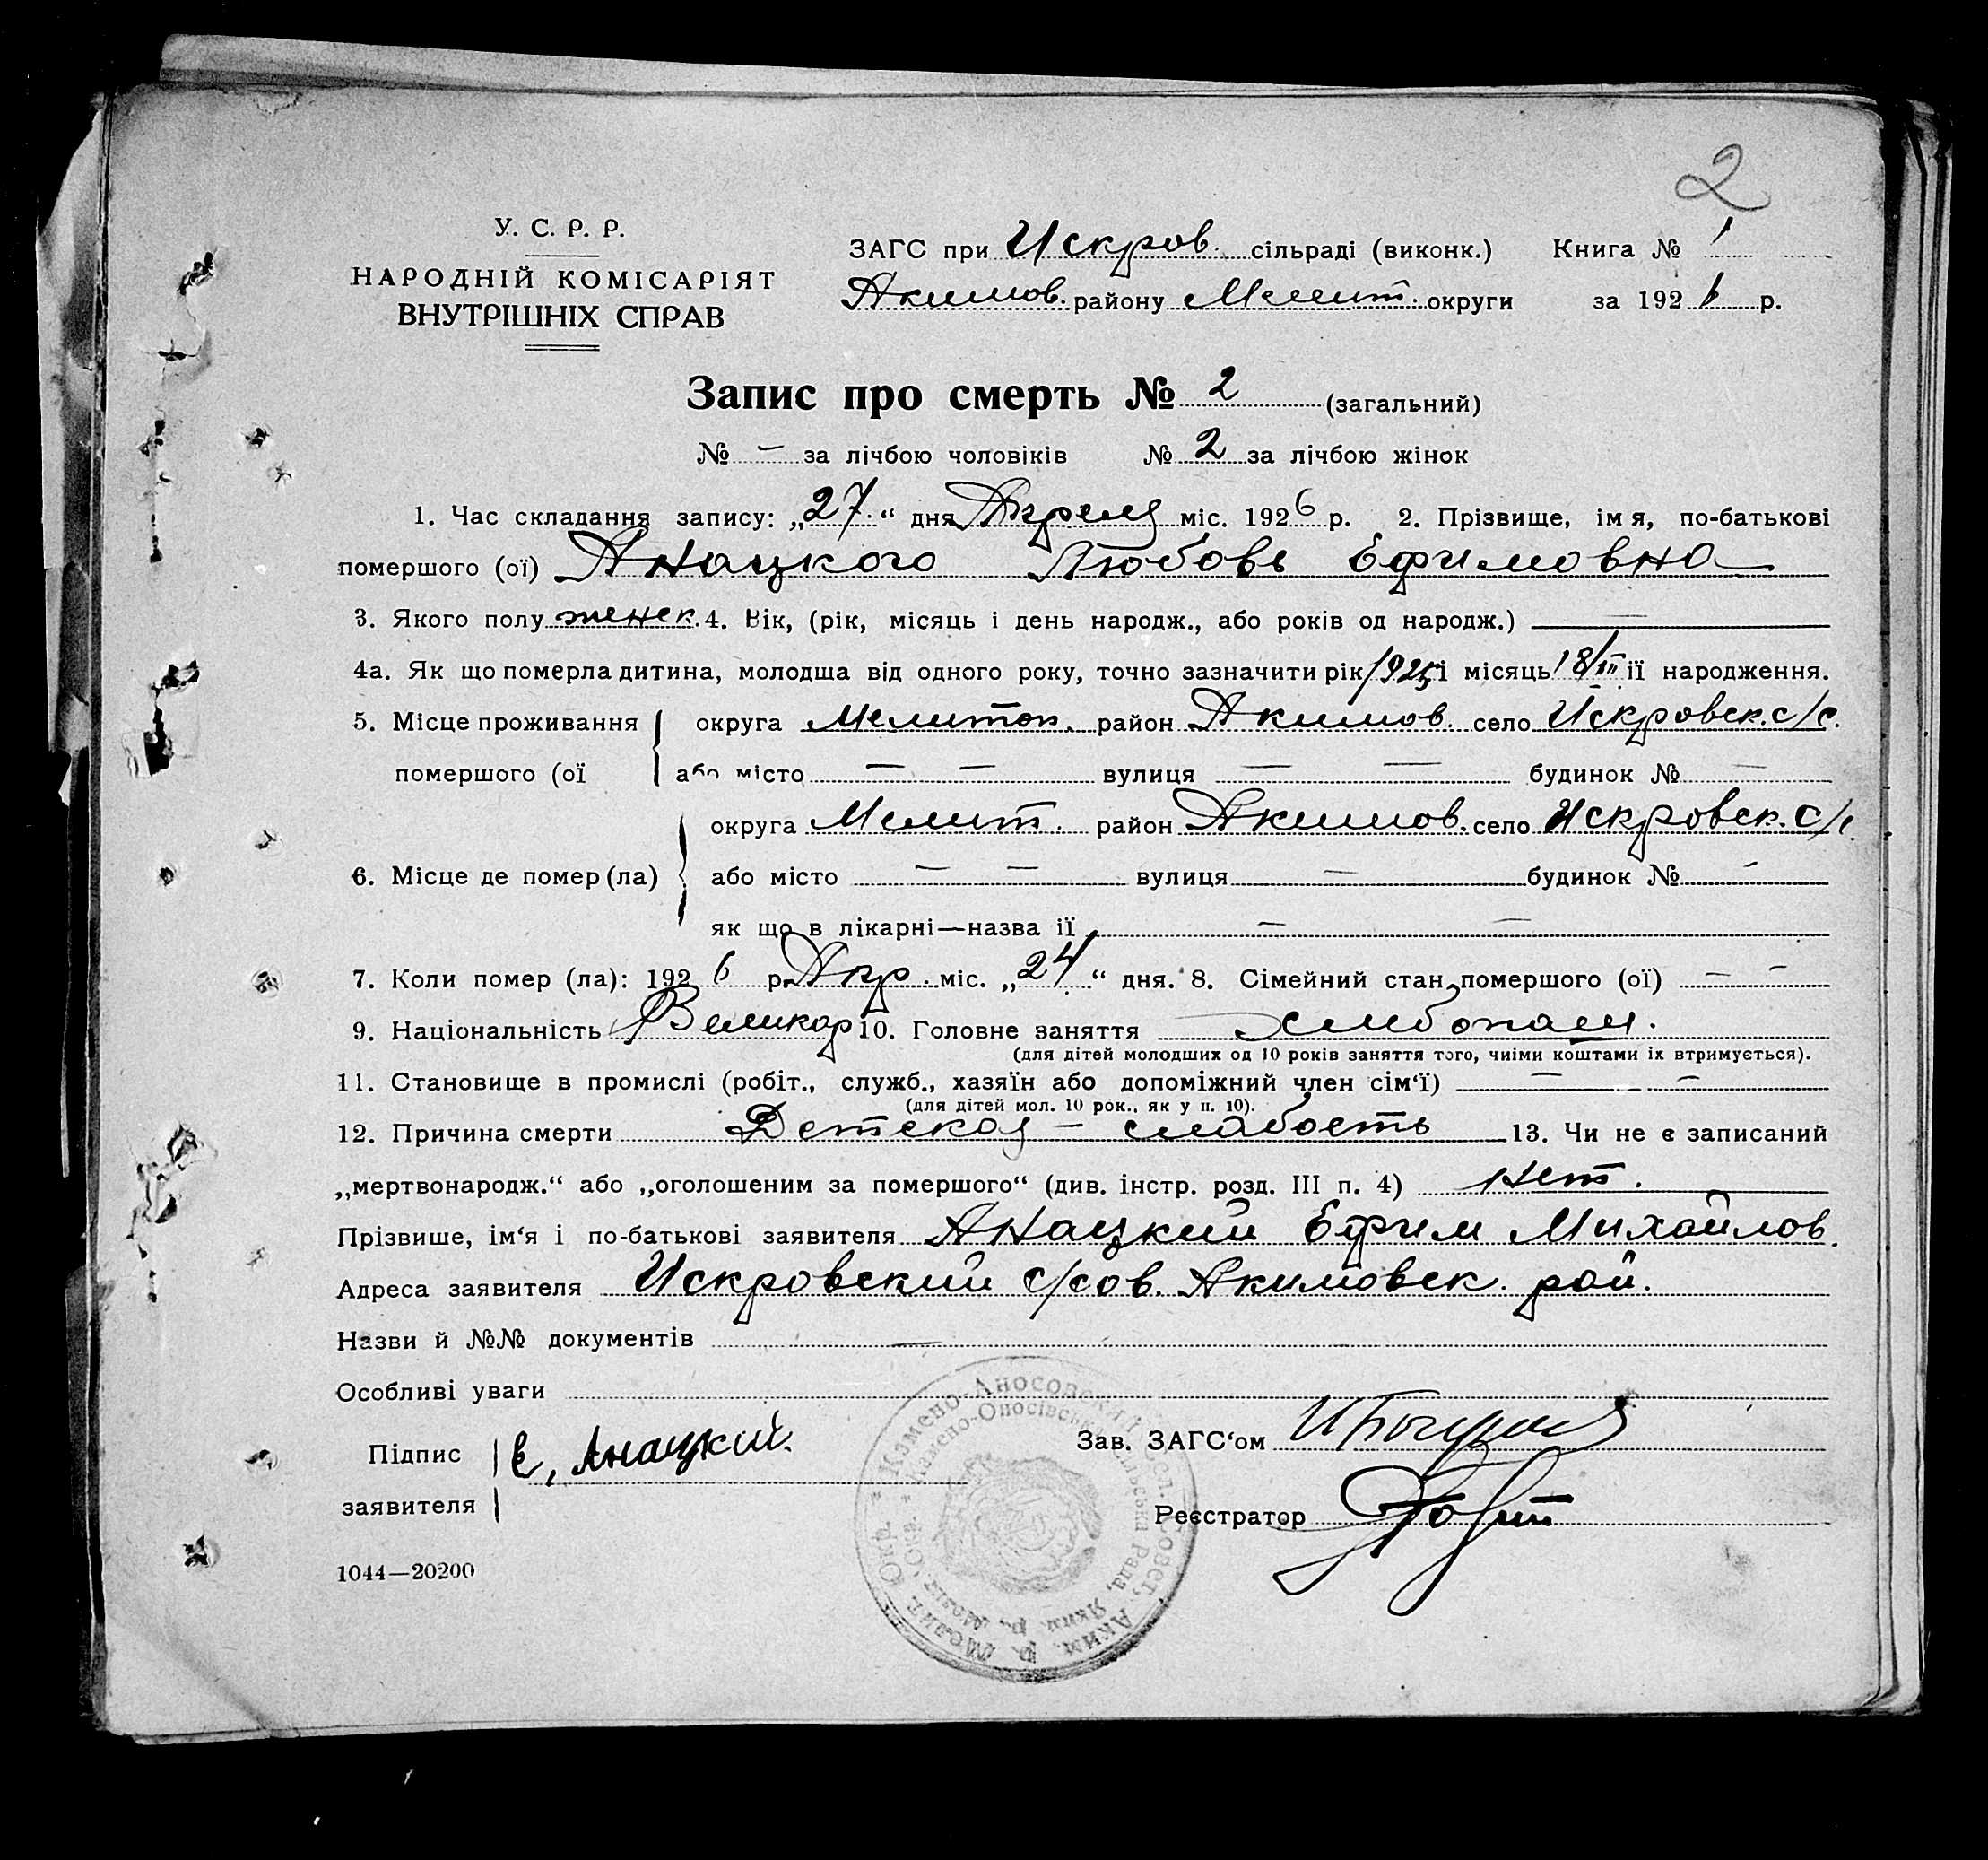 2
У. С. Р. Р.
НАРОДНІЙ КОМІСАРІЯТ
ВНУТРІШНІХ СПРАВ
ЗАГС при Искров. сільраді (виконк.) Книга № 1
Акимов. району Мелит. округи за 1926 р.
Запис про смерть № 2 (загальний)
№ — за лічбою чоловіків № 2 за лічбою жінок
1. Час складання запису: „27.“ дня Апреля міс. 1926 р. 2. Прізвище, імя, по-батькові
помершого (ої) Анацкого Любовь Ефимовна
3. Якого полу женск. 4. Вік, (рік, місяць і день народж., або років од народж.) —
4а. Як що померла дитина, молодша від одного року, точно зазначити рік 1925 і місяць 18/XII її народження.
5. Місце проживання округа Мелитоп. район Акимов. село Искровск. с/с.
помершого (ої або місто — — вулиця — — будинок № —
округа Мелит. район Акимов. село Искровск. с/с.
6. Місце де помер (ла) або місто — — вулиця — будинок № —
як що в лікарні—назва ії — —
7. Коли помер (ла): 1926 р. Апр. міс. „24“ дня. 8. Сімейний стан помершого (ої) — —
9. Національність Великор 10. Головне заняття хлибопаш.
(для дітей молодших од 10 років заняття того, чиїми коштами їх втримується).
11. Становище в промислі (робіт., служб., хазяїн або допоміжний член сім‘ї) — —
(для дітей мол. 10 рок., як у п. 10).
12. Причина смерти Детская – слабость 13. Чи не є записаний
„мертвонародж.“ або „оголошеним за помершого“ (див. інстр. розд. III п. 4) нет.
Прізвише, ім‘я і по-батькові заявителя Анацкий Ефим Михайлов.
Адреса заявителя Искровский с/сов. Акимовск. рай.
Назви й №№ документів —
Особливі уваги
Підпис
заявителя Е. Анацкий.
Зав. ЗАГС‘ом
Реєстратор
1044—20200
Каменно-Аносовский Сел. Совет, Аким. р. Мелит. Окр.
Камено-Оносівська Сільська Рада, Яким. р., Меліт. Окр.